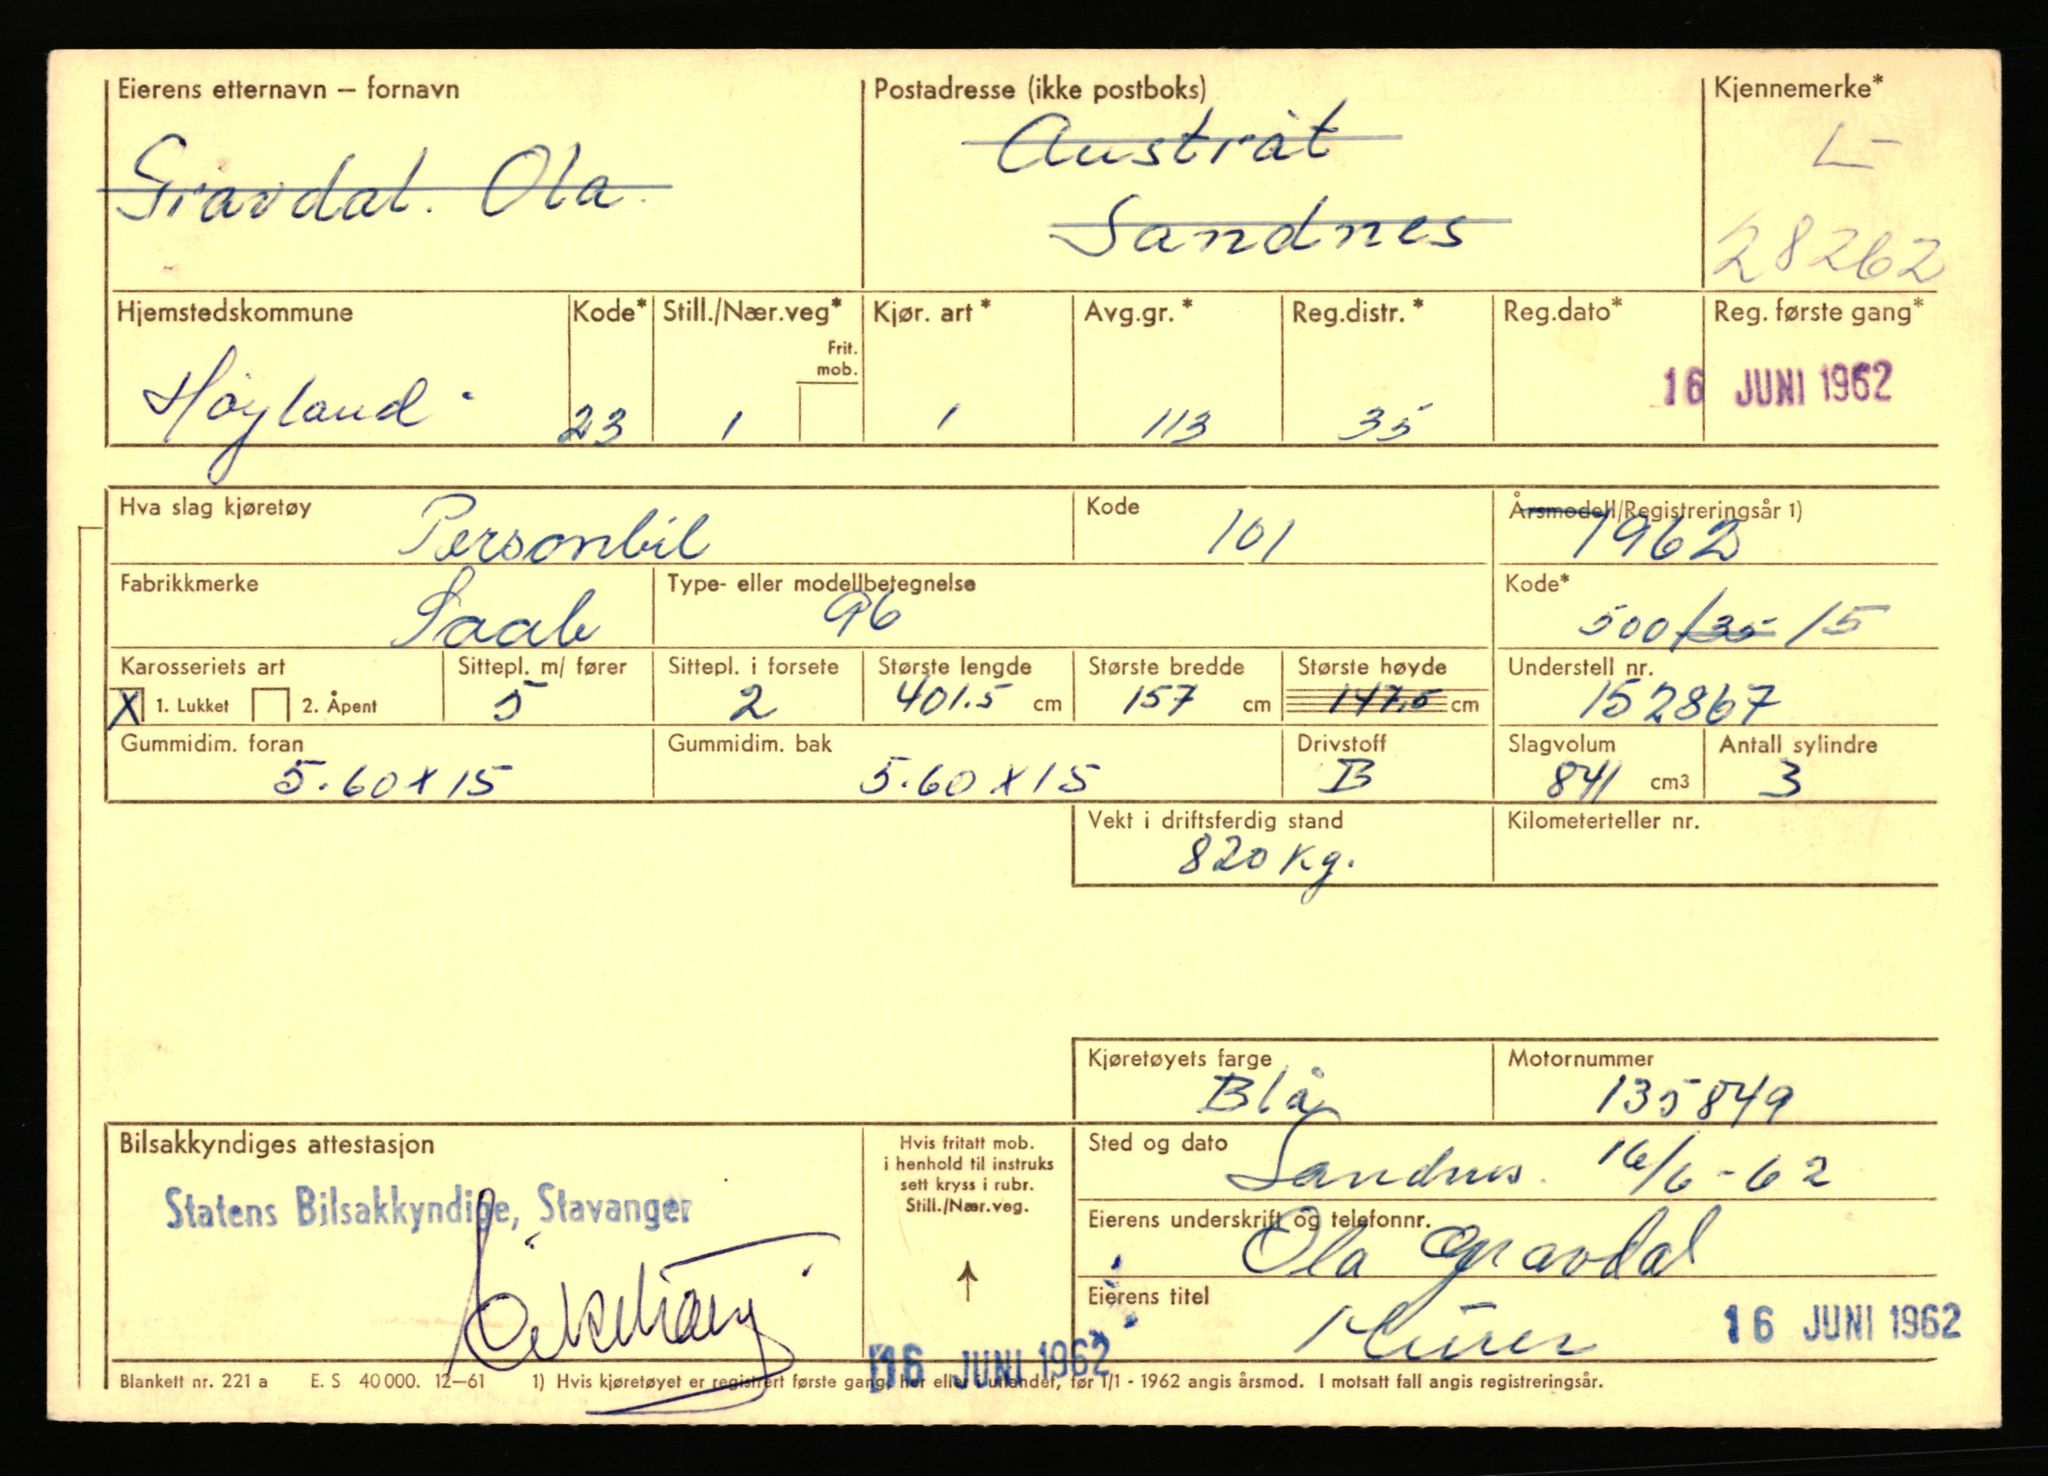 Eierens etternavn – fornavn
Postadresse (ikke postboks)
Kjennemerke*
Gravdal. Ola.
Austråt
Sandnes
L-
28262
Hjemstedskommune
Kode*
Still./Nær.veg*
Frit. mob.
Kjør. art*
Avg.gr.*
Reg.distr.*
Reg.dato*
Reg. første gang*
Høyland
23
1
1
113
35
16 JUNI 1962
Hva slag kjøretøy
Personbil
Kode
101
Årsmodell/Registreringsår 1)
1962
Fabrikkmerke
Saab
Type- eller modellbetegnelse
96
Kode*
500/35/5
Karosseriets art
X 1. Lukket
2. Åpent
Sittepl. m/ fører
5
Sittepl. i forsete
2
Største lengde
401.5 cm
Største bredde
157 cm
Største høyde
147,5 cm
Understell nr.
152867
Gummidim. foran
5.60x15
Gummidim. bak
5.60x15
Drivstoff
B
Slagvolum
841 cm3
Antall sylindre
3
Vekt i driftsferdig stand
820 kg.
Kilometerteller nr.
Kjøretøyets farge
Blå
Motornummer
135849
Bilsakkyndiges attestasjon
Statens Bilsakkyndige, Stavanger
Hvis fritatt mob.
i henhold til instruks
sett kryss i rubr.
Still./Nær.veg.
Sted og dato
Sandnes. 16/6-62
Eierens underskrift og telefonnr.
Ola Gravdal
Eierens titel
Murer
16 JUNI 1962
16 JUNI 1962
Blankett nr. 221 a E. S 40 000. 12–61 1) Hvis kjøretøyet er registrert første gang, her eller i utlandet, før 1/1 - 1962 angis årsmod. I motsatt fall angis registreringsår.